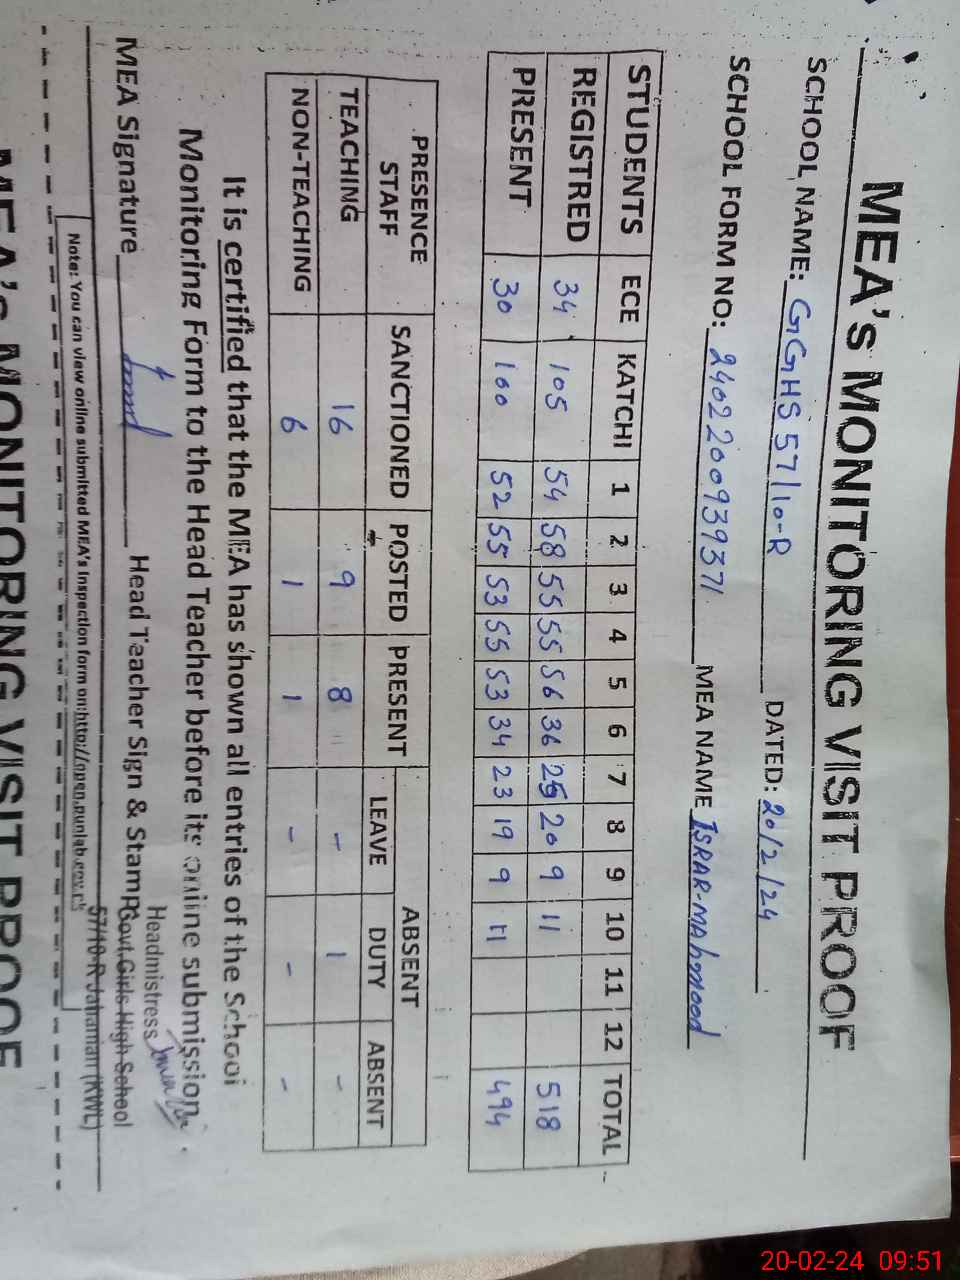 MEA's MONITORING VISIT PROOF
SCHOOL NAME: GGHS 57/10-R DATED: 20/2/24
SCHOOL FORM NO: 2402200939371 MEA NAME ISRAR-MAhmood
STUDENTS ECE KATCHI 1 2 3 4 5 6 7 8 9 10 11 12 TOTAL
REGISTRED 34 105 54 58 55 55 56 36 25 20 9 11 518
PRESENT 30 100 52 55 53 55 53 34 23 19 9 11 494
PRESENCE STAFF SANCTIONED POSTED PRESENT ABSENT
LEAVE DUTY ABSENT
TEACHING 16 9 8 - 1 -
NON-TEACHING 6 1 1 - - -
It is certified that the MEA has shown all entries of the School
Monitoring Form to the Head Teacher before its online submission.
MEA Signature Head Teacher Sign & Stamp
Headmistress
Govt. Girls High School
57/10-R Jahanian (KWL)
Note: You can view online submitted MEA's Inspection form on: http://open.punjab.gov.
MEA's MONITORING VISIT PROOF
20-02-24 09:51